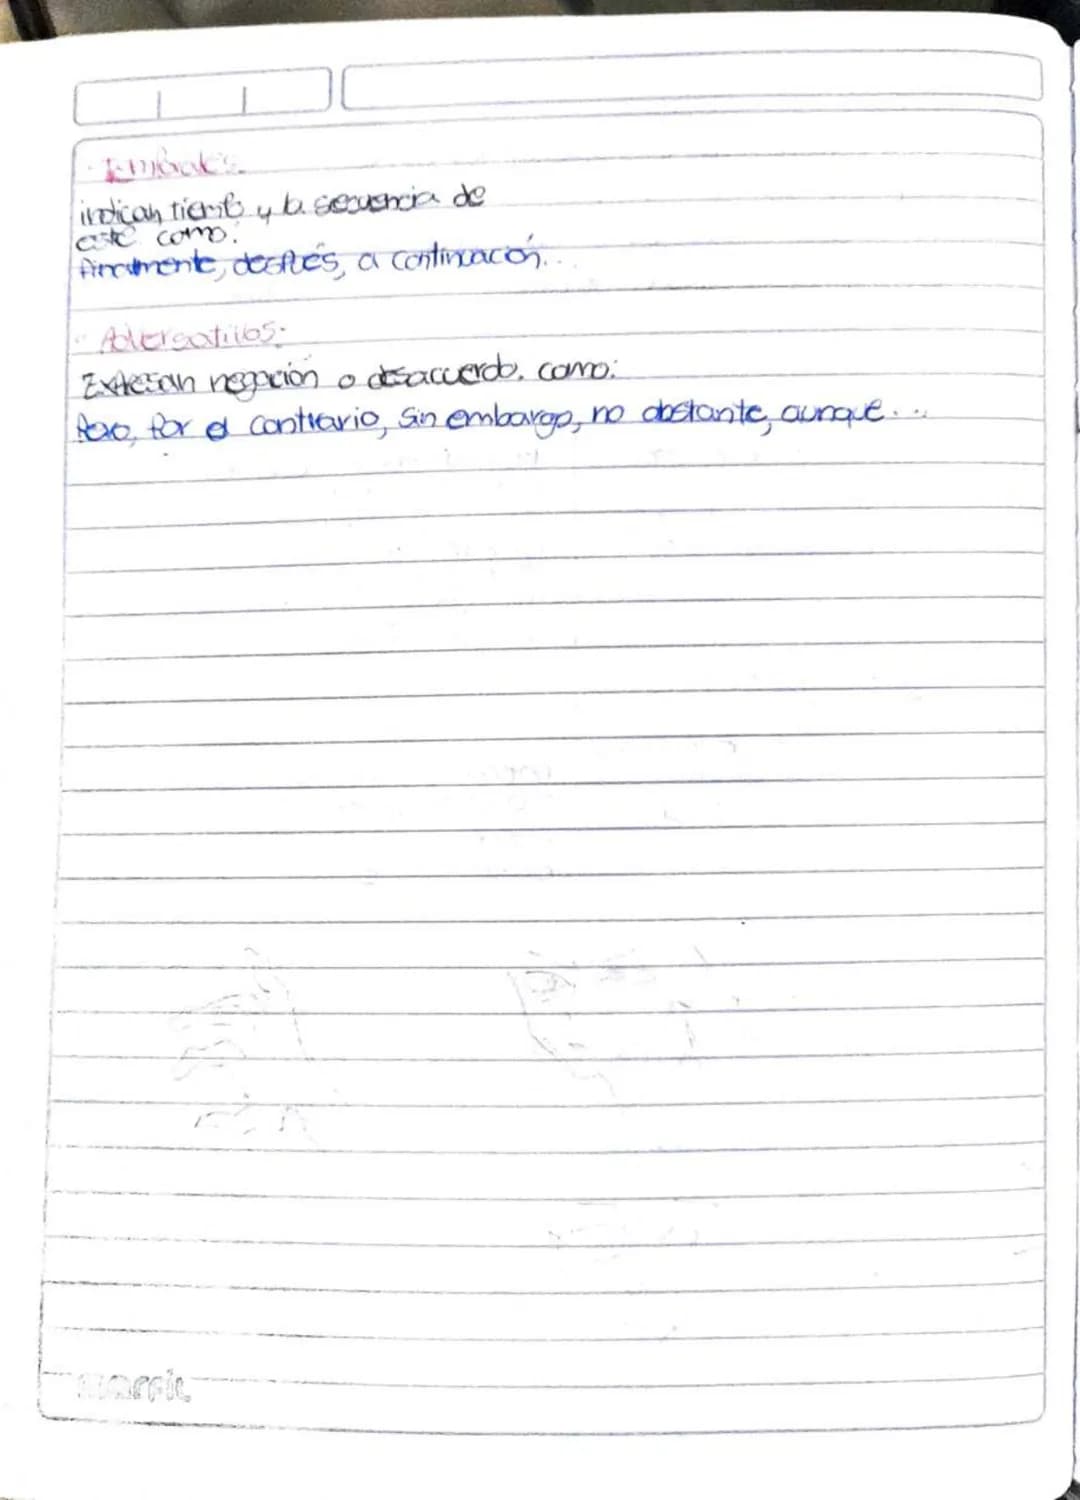 · Temporales.
indican tiempo y la secuencia de
este como:
finalmente, después, a continuación...
· Adversativos:
Expresan negación o desacuerdo, como:
Pero, Por el contrario, Sin embargo, no obstante, aunque...
marfil